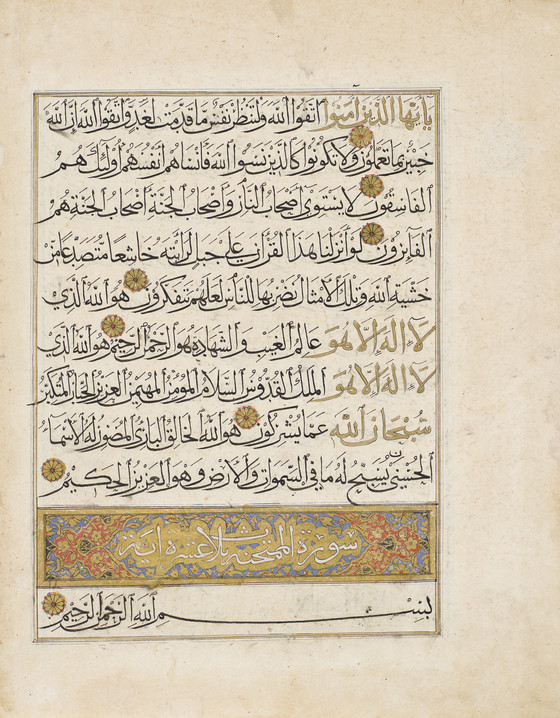 يا أيها الذين آمنوا اتقوا الله ولتنظر نفس ما قدمت لغد واتقوا الله إن الله
خبير بما تعملون ولا تكونوا كالذين نسوا الله فأنساهم أنفسهم أولئك هم
الفاسقون لا يستوي أصحاب النار وأصحاب الجنة أصحاب الجنة هم
الفائزون لو أنزلنا هذا القرآن على جبل لرأيته خاشعا متصدعا من
خشية الله وتلك الأمثال نضربها للناس لعلهم يتفكرون هو الله الذي
لا اله الا هو عالم الغيب والشهادة هو الرحمن الرحيم هو الله الذي
لا اله الا هو الملك القدوس السلام المؤمن المهيمن العزيز الجبار المتكبر
سبحان الله عما يشركون هو الله الخالق البارئ المصور له الأسماء
الحسنى يسبح له ما في السموات والأرض وهو العزيز الحكيم
سورة الممتحنة ثلاث عشرة آية
بسم الله الرحمن الرحيم